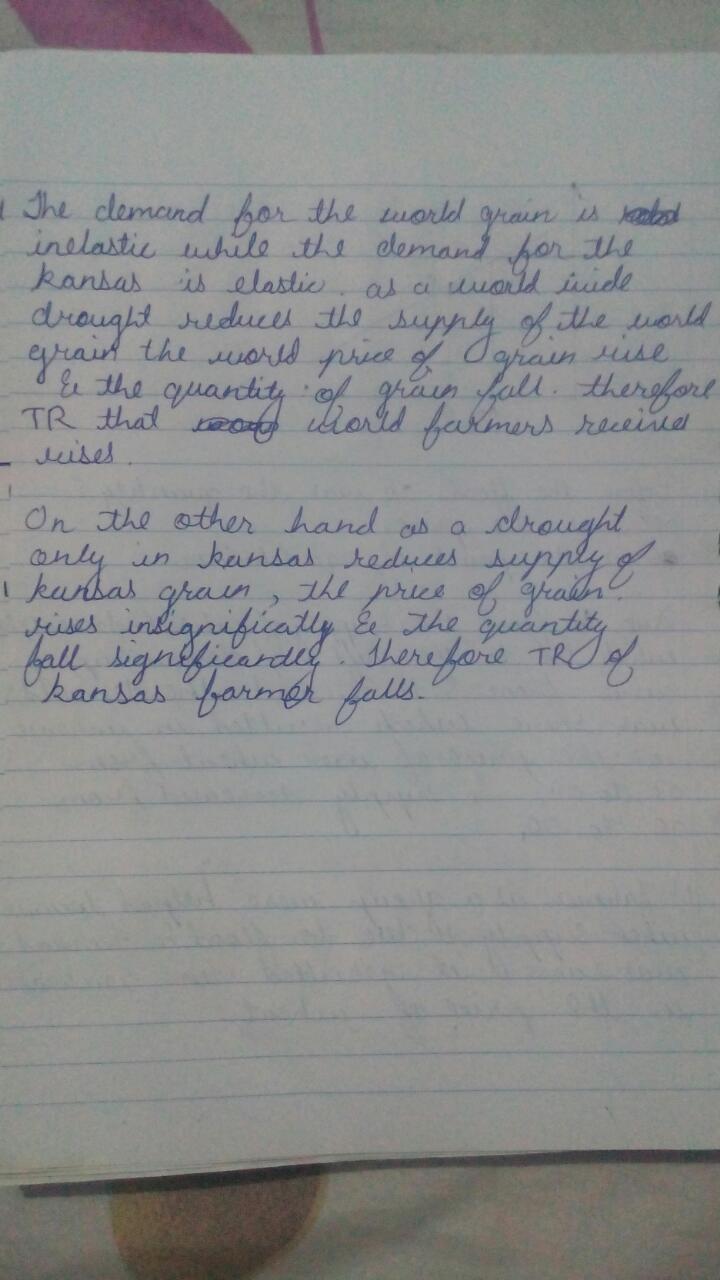 The demand for the world grain is
inelastic while the demand for the
kansas is elastic. as a world wide
drought reduces the supply of the world
grain the world price of grain rise
& the quantity of grain fall. therefore
TR that world farmers receives
rises.
On the other hand as a drought
only in kansas reduces supply of
kansas grain, the price of grain
rises insignifically & the quantity
fall significandly. Therefore TR of
kansas farmer falls.